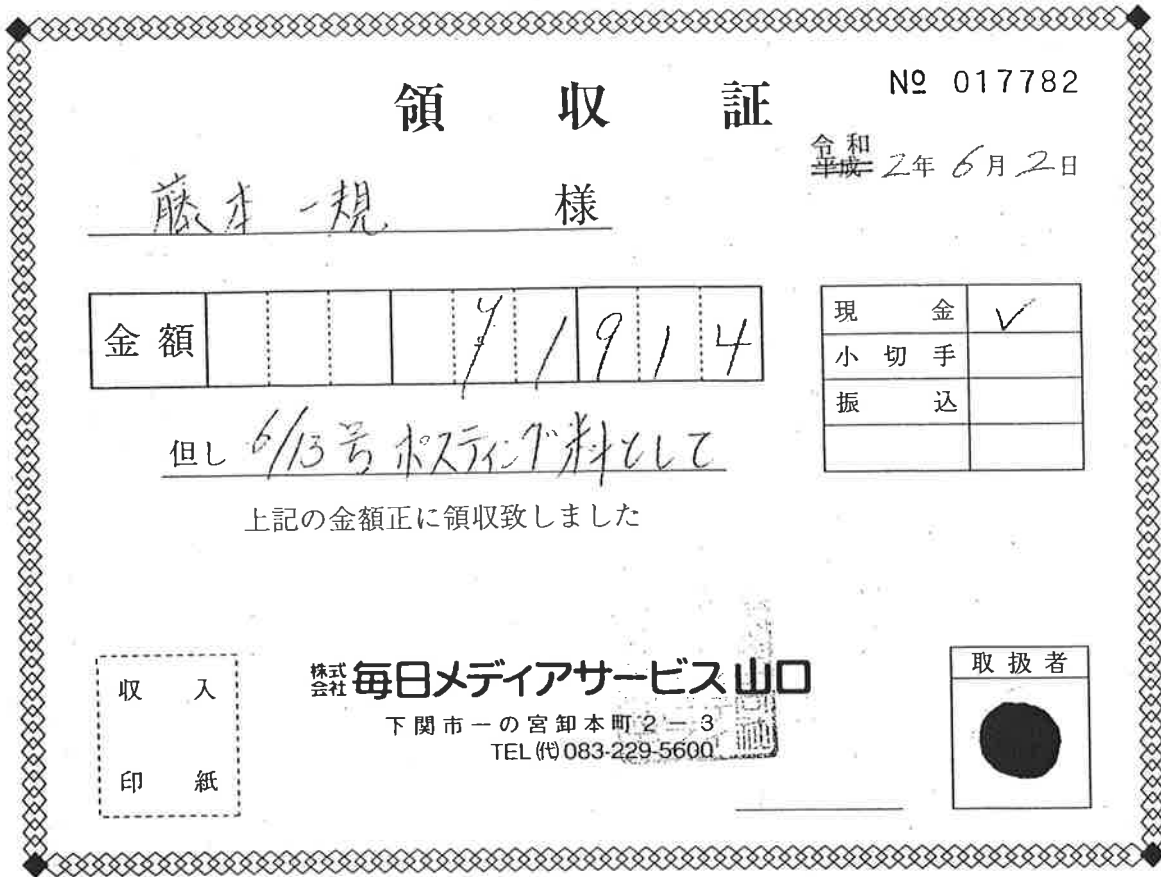 領収証
№ 017782
令和
平成 2年 6月 2日
藤本一規 様
金額 ¥1914
現金 ✓
小切手
振込
但し 6/13号ポスティング料として
上記の金額正に領収致しました
収入
印紙
株式会社 毎日メディアサービス山口
下関市一の宮卸本町2－3
TEL(代)083-229-5600
取扱者